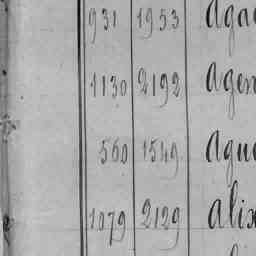 931 1953 Aga
1130 2192 Agen
560 1549 Ague
1079 2129 Alix